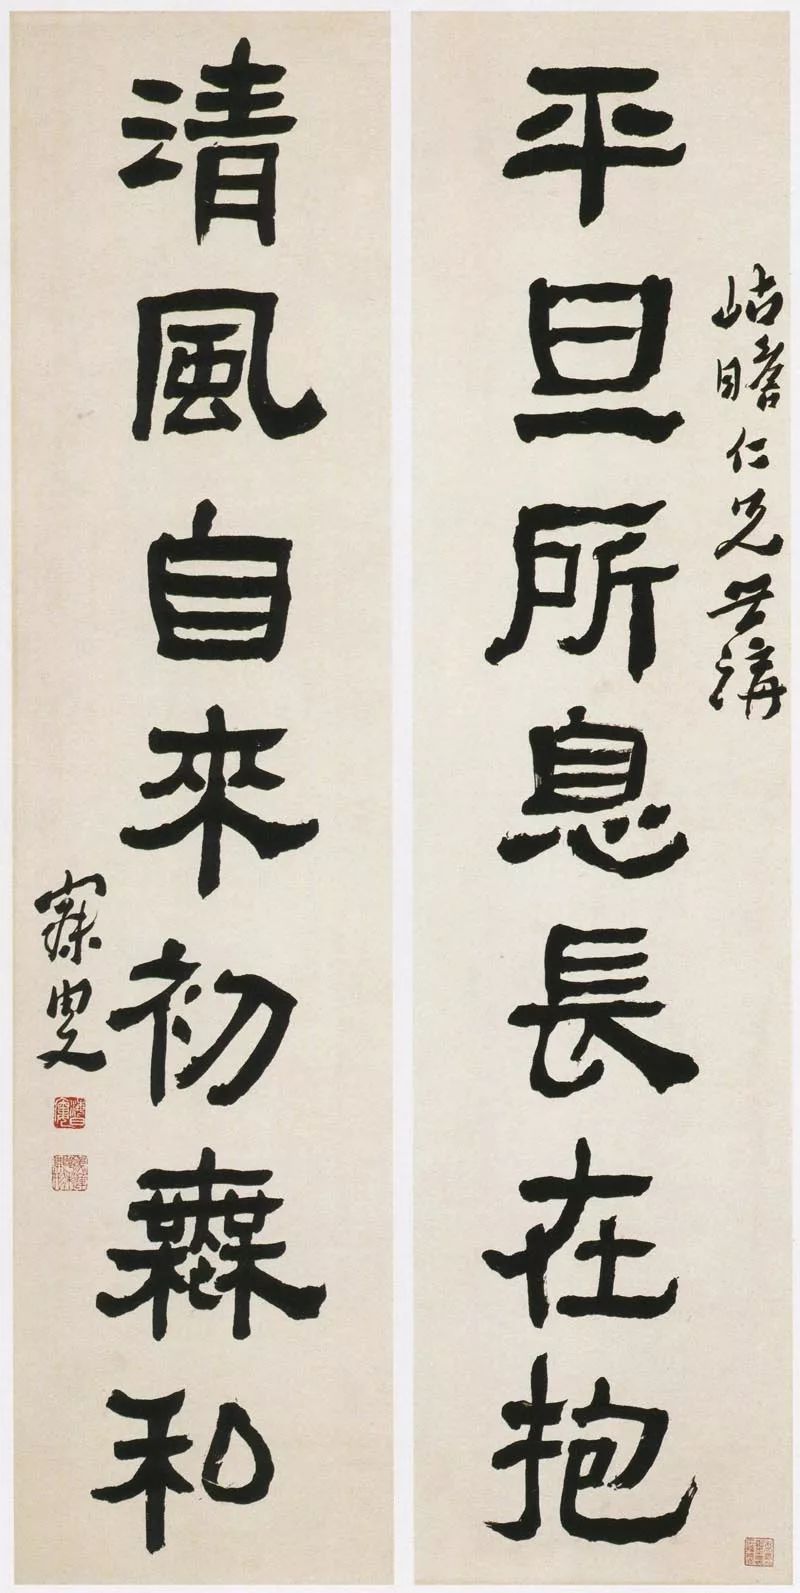 岵瞻仁兄世講
平旦所息長在抱
清風自來初無和
寐叟